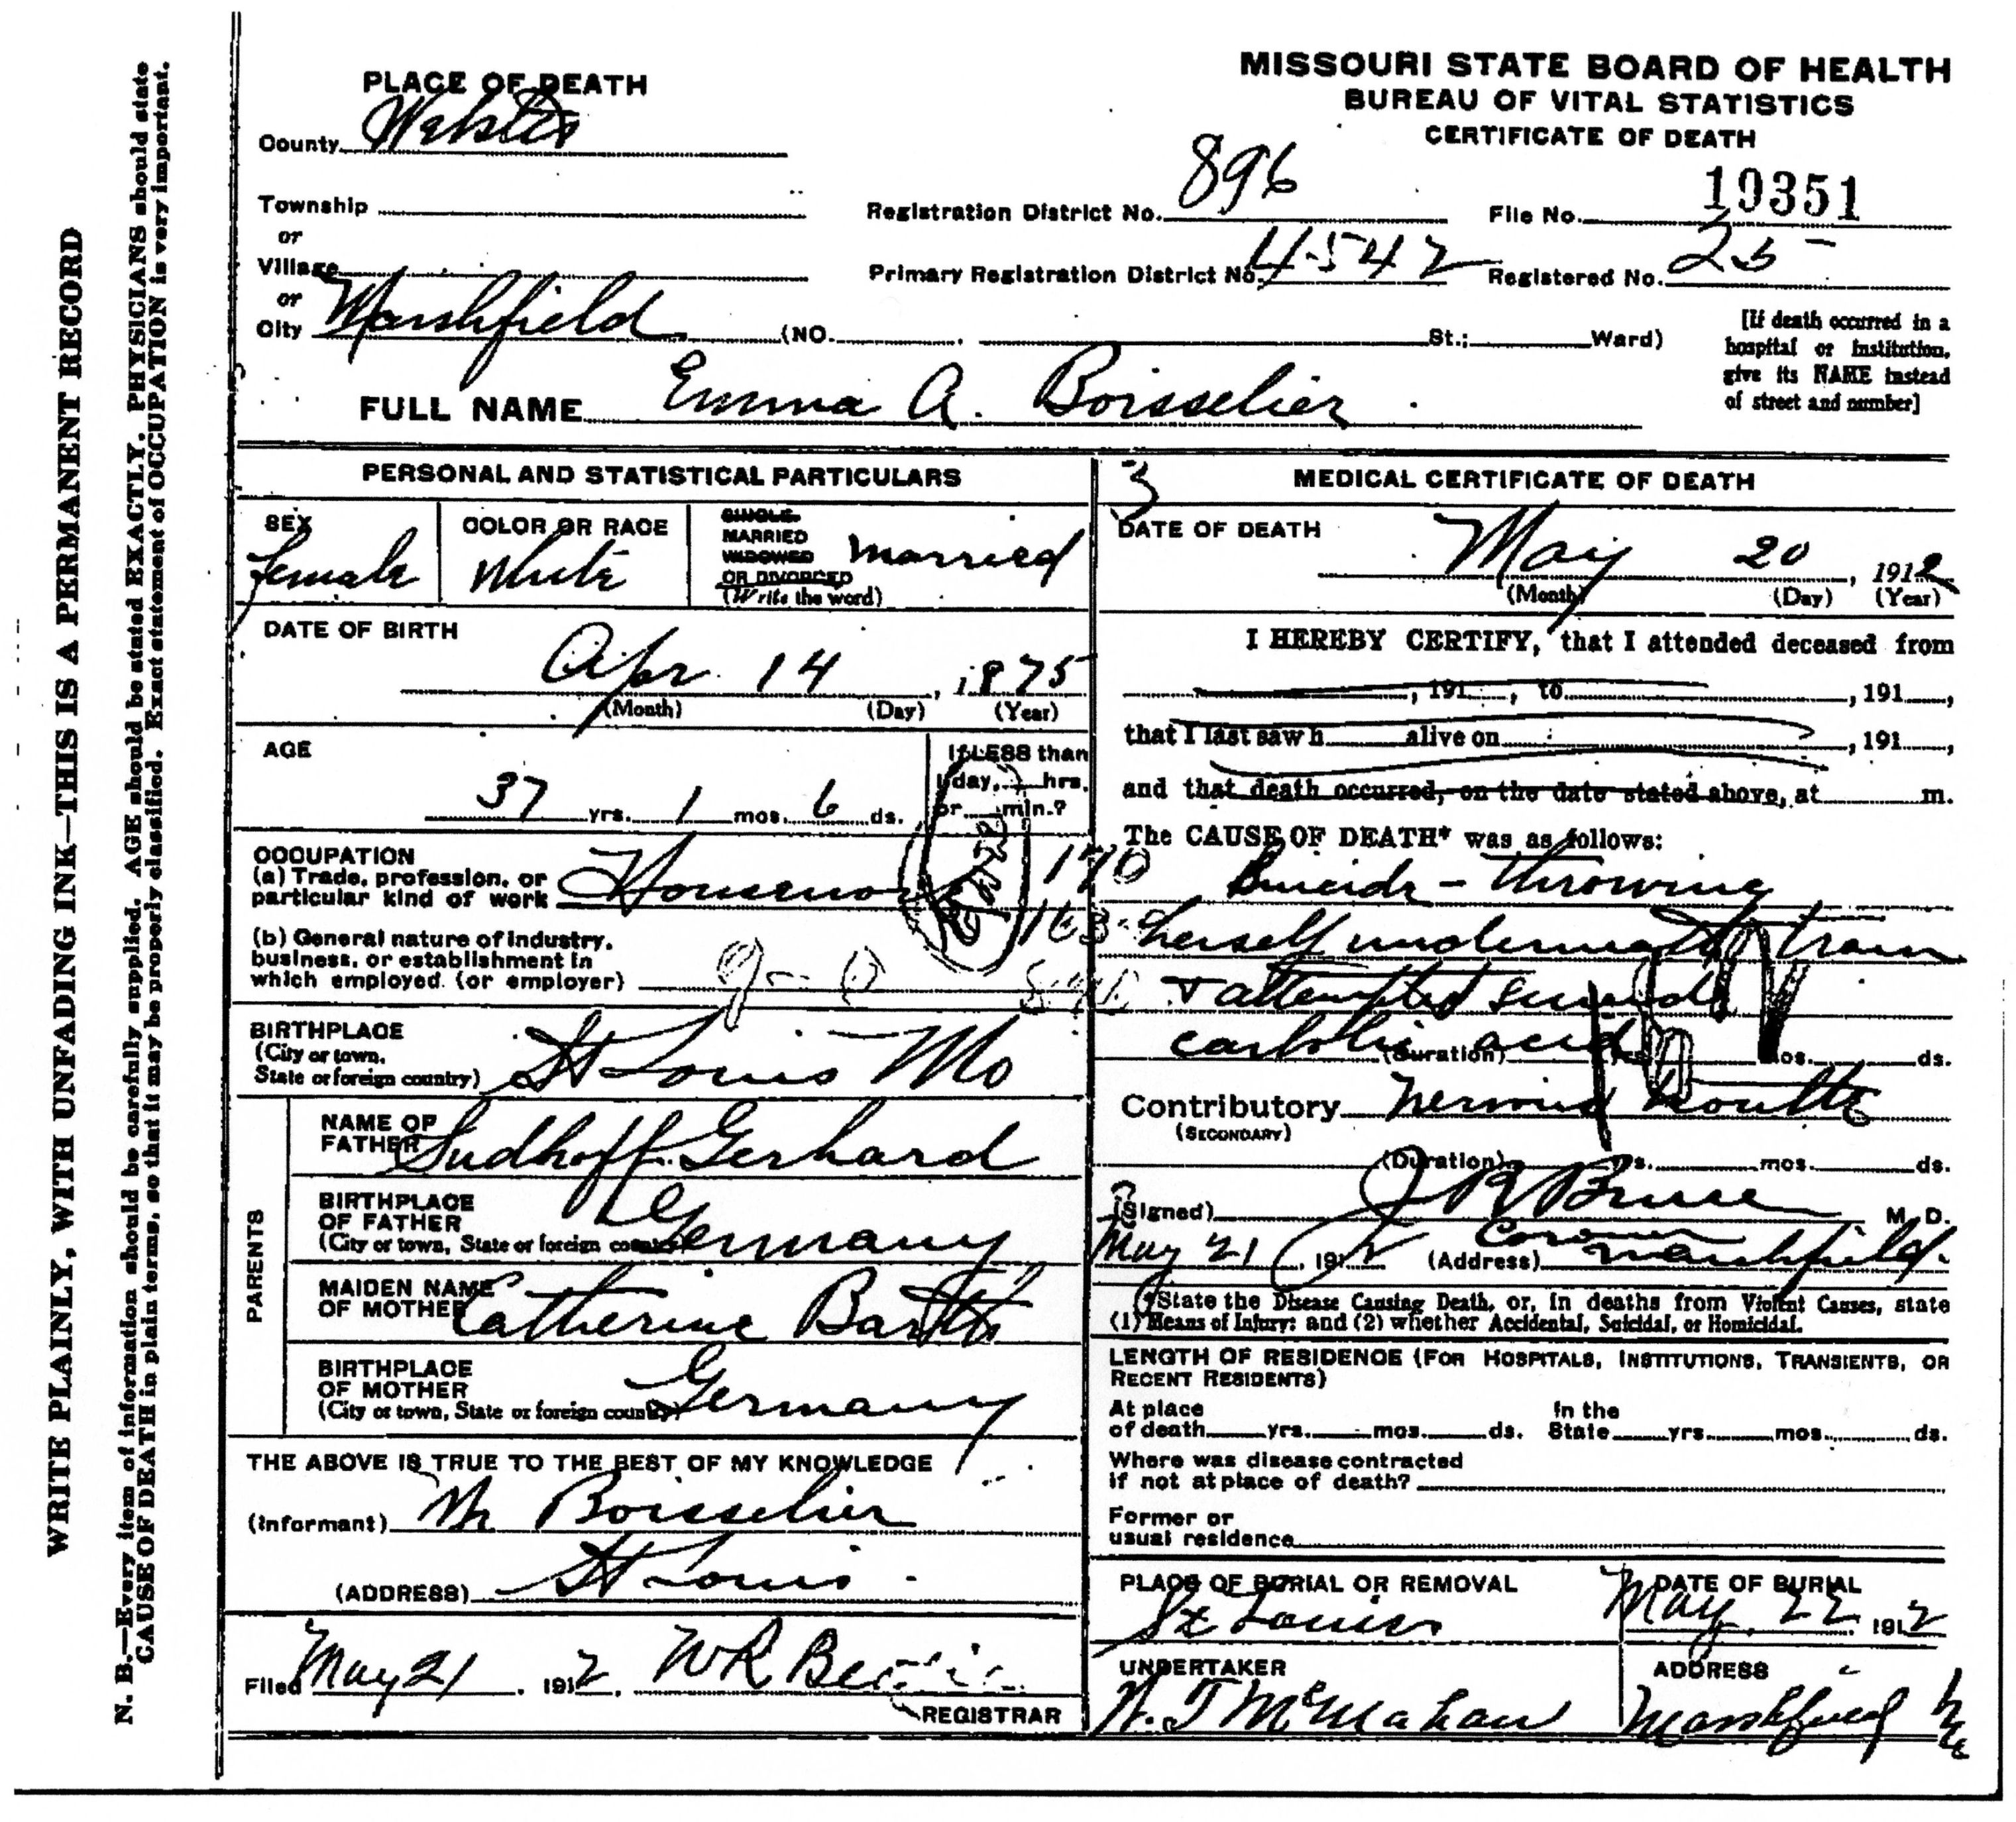 WRITE PLAINLY, WITH UNFADING INK—THIS IS A PERMANENT RECORD
N. B.—Every item of information should be carefully supplied. AGE should be stated EXACTLY. PHYSICIANS should state
CAUSE OF DEATH in plain terms, so that it may be properly classified. Exact statement of OCCUPATION is very important.
MISSOURI STATE BOARD OF HEALTH
BUREAU OF VITAL STATISTICS
CERTIFICATE OF DEATH
PLACE OF DEATH
County Webster
Township
or
Village
or
City Marshfield (NO. St.; Ward)
Registration District No. 896
File No. 19351
Primary Registration District No. 4542
Registered No. 25
[If death occurred in a
hospital or institution,
give its NAME instead
of street and number]
FULL NAME Emma A. Boisselier
PERSONAL AND STATISTICAL PARTICULARS
SEX
Female
COLOR OR RACE
White
SINGLE
MARRIED
WIDOWED
OR DIVORCED
(Write the word)
Married
DATE OF BIRTH
Apr. 14, 1875
(Month) (Day) (Year)
AGE
37 yrs. 1 mos. 6 ds.
If LESS than
1 day, hrs.
or min.?
OCCUPATION
(a) Trade, profession, or
particular kind of work
(b) General nature of industry,
business, or establishment in
which employed (or employer)
BIRTHPLACE
(City or town,
State or foreign country)
St Louis Mo
PARENTS
NAME OF
FATHER
Sudhoff Gerhard
BIRTHPLACE
OF FATHER
(City or town, State or foreign country)
Germany
MAIDEN NAME
OF MOTHER
Catherine
BIRTHPLACE
OF MOTHER
(City or town, State or foreign country)
Germany
THE ABOVE IS TRUE TO THE BEST OF MY KNOWLEDGE
(Informant) Boisselier
(ADDRESS) St Louis
Filed May 21, 1912, W R
REGISTRAR
3
MEDICAL CERTIFICATE OF DEATH
DATE OF DEATH
May 20, 1912
(Month) (Day) (Year)
I HEREBY CERTIFY, that I attended deceased from
, 191 , to , 191 ,
that I last saw h alive on , 191 ,
and that death occurred, on the date stated above, at m.
The CAUSE OF DEATH* was as follows:
Suicide - throwing
herself underneath train
& attempted suicide
carbolic acid
(Duration) yrs. mos. ds.
Contributory nervous
(SECONDARY)
(Duration) yrs. mos. ds.
(Signed) J R Bruce M. D.
Coroner
May 21, 1912 (Address) Marshfield.
*State the Disease Causing Death, or, in deaths from Violent Causes, state
(1) Means of Injury; and (2) whether Accidental, Suicidal, or Homicidal.
LENGTH OF RESIDENCE (FOR HOSPITALS, INSTITUTIONS, TRANSIENTS, OR
RECENT RESIDENTS)
At place
of death yrs. mos. ds.
In the
State yrs. mos. ds.
Where was disease contracted
if not at place of death?
Former or
usual residence
PLACE OF BURIAL OR REMOVAL
St Louis
DATE OF BURIAL
May 22 1912
UNDERTAKER
N. T McMahan
ADDRESS
Marshfield Mo